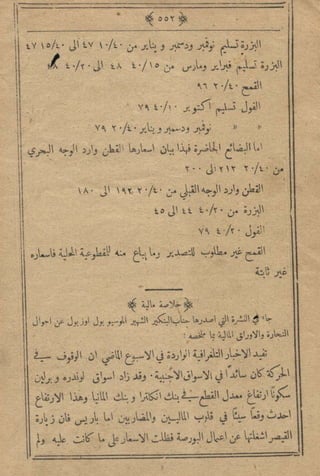 ﴿ ٥٥٢ ﴾
البزرة تسليم نوفمبر ودسمبر و يناير من ١٠/٤٠ ٤٧ الى ١٥/٤٠ ٤٧
البزرة تسليم فبراير ومارس من ١٥/٤٠ ٤٨ الى ٢٠/٤٠
القمح ٢٠/٤٠ ٩٦
الفول تسليم اكتوبر ١٠/٤٠ ٧٩
» » نوفمبر ودسمبر و يناير ٢٠/٤٠ ٧٩
اما البضائع الحاضرة فهذا بيان اسعارها القطن وارد الوجه البحري
من ٢٠/٤٠ ٢١٢ الى ٢٠٠
القطن وارد الوجه القبلي من ٢٠/٤٠ ١٩٢ الى ١٨٠
البزرة من ٢٠/٤٠ ٤٤ الى ٤٥
الفول ٢٠/٤٠ ٧٩
القمح غير مطلوب للتصدير وما يباع منه للمقطوعية المحلية فاسعاره
غير ثابتة
﴿ خلاصة مالية ﴾
جاء في النشرة التي اصدرها جناب البنكير الشهير الموسيو بول اوزبول عن احوال
التجارة والاوراق المالية بما ملخصه :
تفيد الاخبار التلغرافية الواردة في الاسبوع الماضي ان الوقوف في
الحركة كان سائداً في الاسواق الاجنبية . وقد زاد اسواق لوندره و برلين
سكوناً ارتفاع معدل القطع في بنك انكلترا و بنك المانيا وهذا الارتفاع
احدث وقعاً سيئاً في قلوب الماليين والمضاربين اما باريس فان زيارة
القيصر اشغلتها عن اعمال البورصة فظلت الاسعار على ما كانت عليه ولم